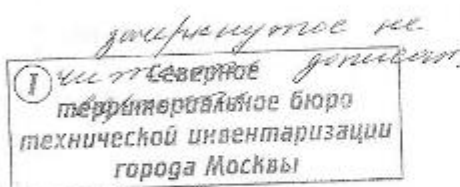 зачеркнутое не
читать дописан
1 Северное
территориальное бюро
технической инвентаризации
города Москвы